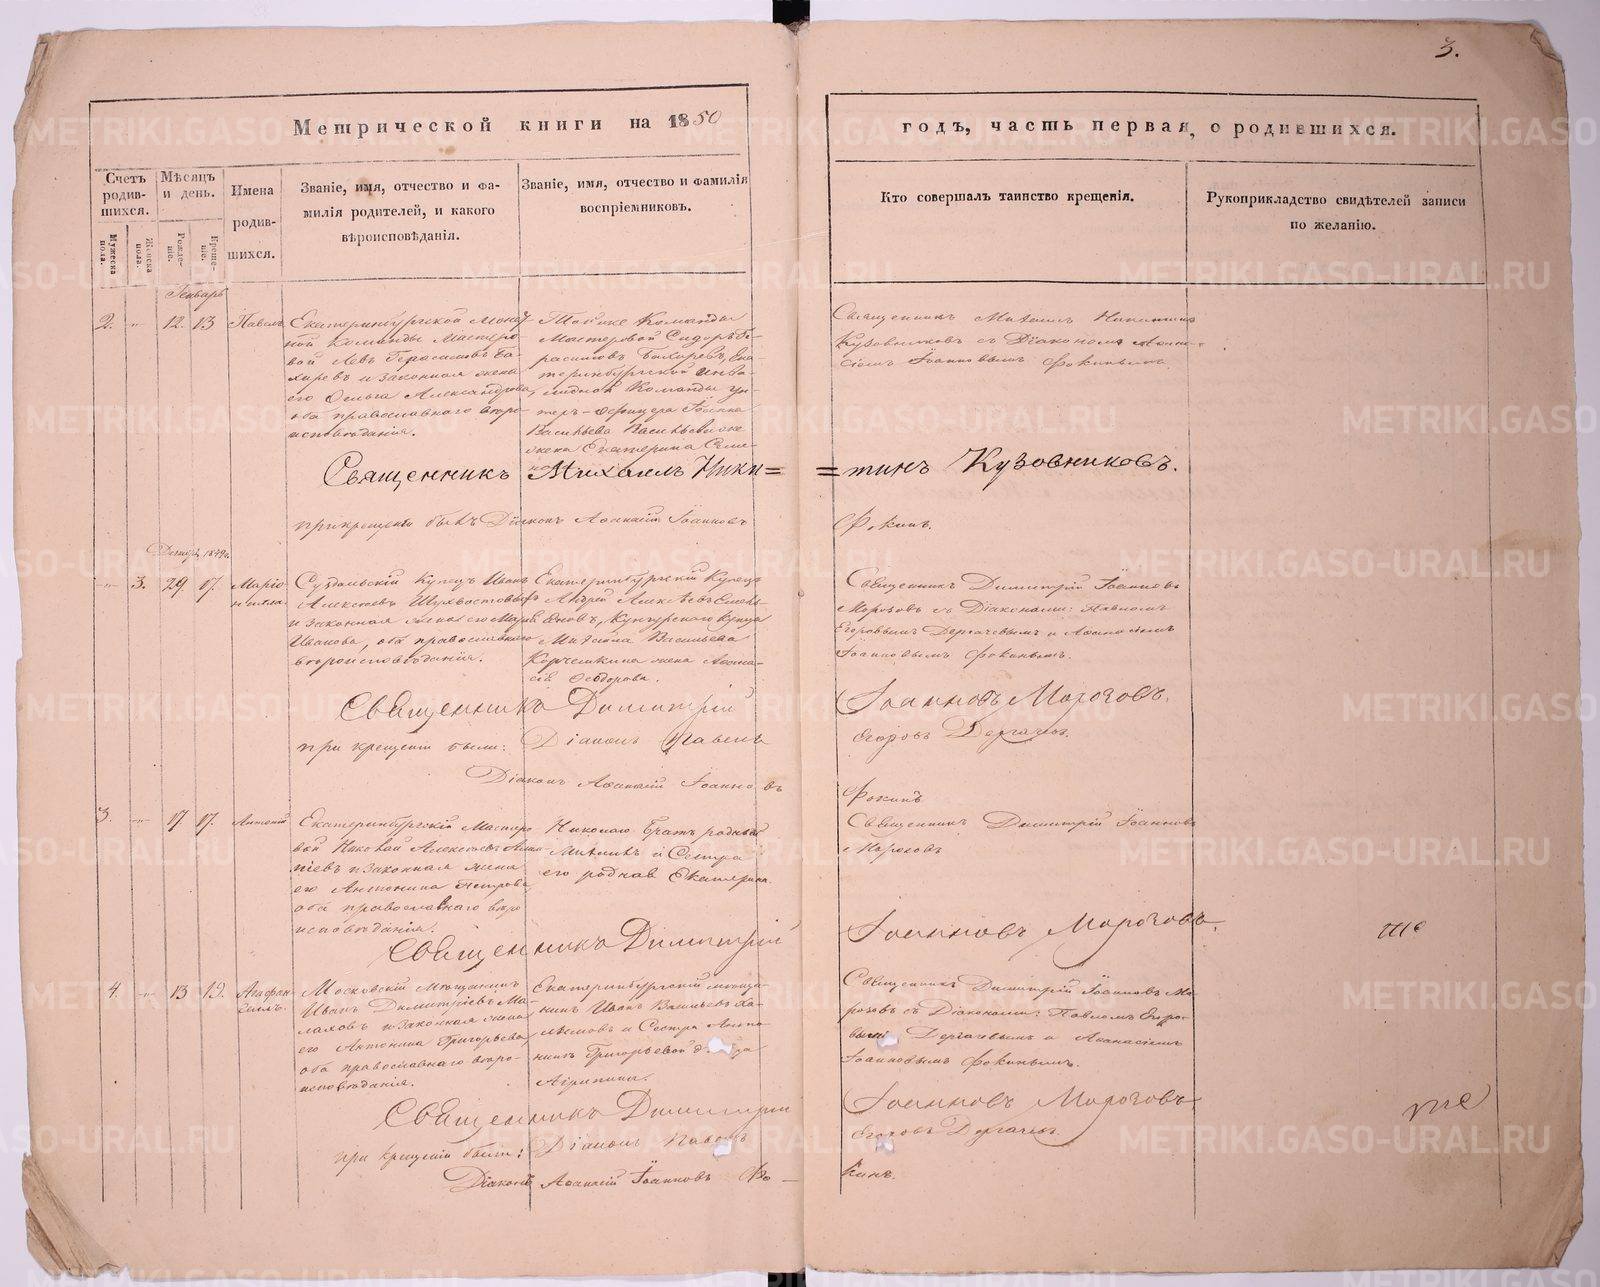 3.
Метрической книги на 1850
годъ, часть первая, о родившихся.
Счетъ родив-шихся.
Мѣсяцъ и день.
Имена родив-шихся.
Званіе, имя, отчество и фа-
милія родителей, и какого
вѣроисповѣданія.
Званіе, имя, отчество и фамилія
воспріемниковъ.
Кто совершалъ таинство крещенія.
Рукоприкладство свидѣтелей записи
по желанію.
Мужеска пола.
Женска пола.
Рожде-ніе.
Креще-ніе.
Генварь
2. „ 12. 13 Павелъ
Екатеринбургской Монет-
ной Команды Мастеро-
вой Левъ Герасимовъ Ба-
хиревъ и законная жена
его Ольга Александрова,
оба православнаго вѣро-
исповѣданія.
Той же Команды
Мастеровой Сидоръ Ге-
расимовъ Бахиревъ, Ека-
теринбургской Инва-
лидной Команды ун-
теръ-офицера Іоанна
Васильева Васильева же
жена Екатерина Семе-
Священникъ Михаилъ Никитинъ
Кузовниковъ съ Діакономъ Аѳана-
сіемъ Іоанновымъ Фокинымъ.
Священникъ Михаилъ Ники= =тинъ Кузовниковъ.
при крещеніи былъ Діаконъ Аѳанасій Іоанновъ Фокинъ.
Декабрь 1849 г.
„ 3. 29 17. Маріо-нилла.
Суздальскій Купецъ Иванъ
Алексѣевъ
и законная жена его Марія
Иванова, оба православнаго
вѣроисповѣданія.
Екатеринбургскій Купецъ
Андрей Алексѣевъ
Кунгурскаго Купца
Михаила Васильева
жена Аѳана-
сія Ѳедорова.
Священникъ Димитрій Іоанновъ
Морозовъ съ Діаконами: Павломъ
Егоровымъ Дергачевымъ и Аѳанасіемъ
Іоанновымъ Фокинымъ.
Священникъ Димитрій Іоанновъ Морозовъ.
при крещеніи были: Діаконъ Павелъ Егоровъ Дергачевъ.
Діаконъ Аѳанасій Іоанновъ Фокинъ
3. „ 17 17. Антоній
Екатеринбургскій Мастеро-
вой Николай Алексѣевъ
и законная жена
его Антонина Петрова,
оба православнаго вѣро-
исповѣданія.
Николаю Братъ родный
и Сестра
его родная Екатерина.
Священникъ Димитрій Іоанновъ
Морозовъ
Священникъ Димитрій Іоанновъ Морозовъ.
4. „ 13 19. Агафан-гелъ.
Московскій Мѣщанинъ
Иванъ Димитріевъ Ма-
лаховъ и законная жена
его Антонина Григорьева,
оба православнаго вѣро-
исповѣданія.
Екатеринбургскій мѣща-
нинъ Иванъ Васильевъ
и Сестра
Григорьевой
Агрипина.
Священникъ Димитрій Іоанновъ Мо-
розовъ съ Діаконами: Павломъ Егоро-
вымъ Дергачевымъ и Аѳанасіемъ
Іоанновымъ Фокинымъ.
Священникъ Димитрій Іоанновъ Морозовъ
при крещеніи были: Діаконъ Павелъ Егоровъ Дергачевъ.
Діаконъ Аѳанасій Іоанновъ Фо-кинъ.
METRIKI.GASO-URAL.RU